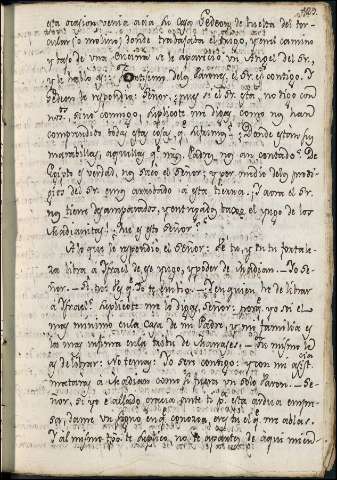 123.
esta ocasion venia acia su Casa Gedeon de buelta del tor-
cular (o molino) donde trabajaba el trigo, y en el camino
y bajo de una Encina se le aparecio un Angel del Sr.,
y le hablo asi: Oh optimo de los Varones, el Sr. es contigo. Y
Gedeon le respondio: Señor, pues si el Sr. esta, no digo con
nos, sino conmigo, suplicote me digas, como nos han
comprendido todas estas cosas, q. Donde estan sus
marabillas, aquellas q. nos. Padres nos an contado? De
Egipto es verdad, nos saco el Señor; y por medio de los prodi-
gios del Sr. emos arribado a esta tierra. Y aora el Sr.
nos tiene desamparados, y entregados baxo el yugo de los
Madianitas? Que es esto Señor?
A lo que le respondio el Señor: Ve tu, y en tu fortale-
za libra a Israel de ese yugo, y poder de Madian. Yo Se-
ñor. Si, pues soy q. Yo te embio. Y en quien he de librar
a Israel? Suplicote me lo digas, Señor; porq. yo soi el
mas minimo en la Casa de mi Padre, y mi familia es
la mas infima en la tribu de Manases. Tu mismo le
as de librar: No temas: Yo sere contigo: y con mi asist.
mataras a Madian como si fuera un solo Varon. Se-
ñor, si yo e allado gracia ante ti p. esta ardua empre-
sa, dame un signo en q. conozca, eres tu el q. me ablas.
Y al mismo tpo. te suplico, no te apartes de aqui mient